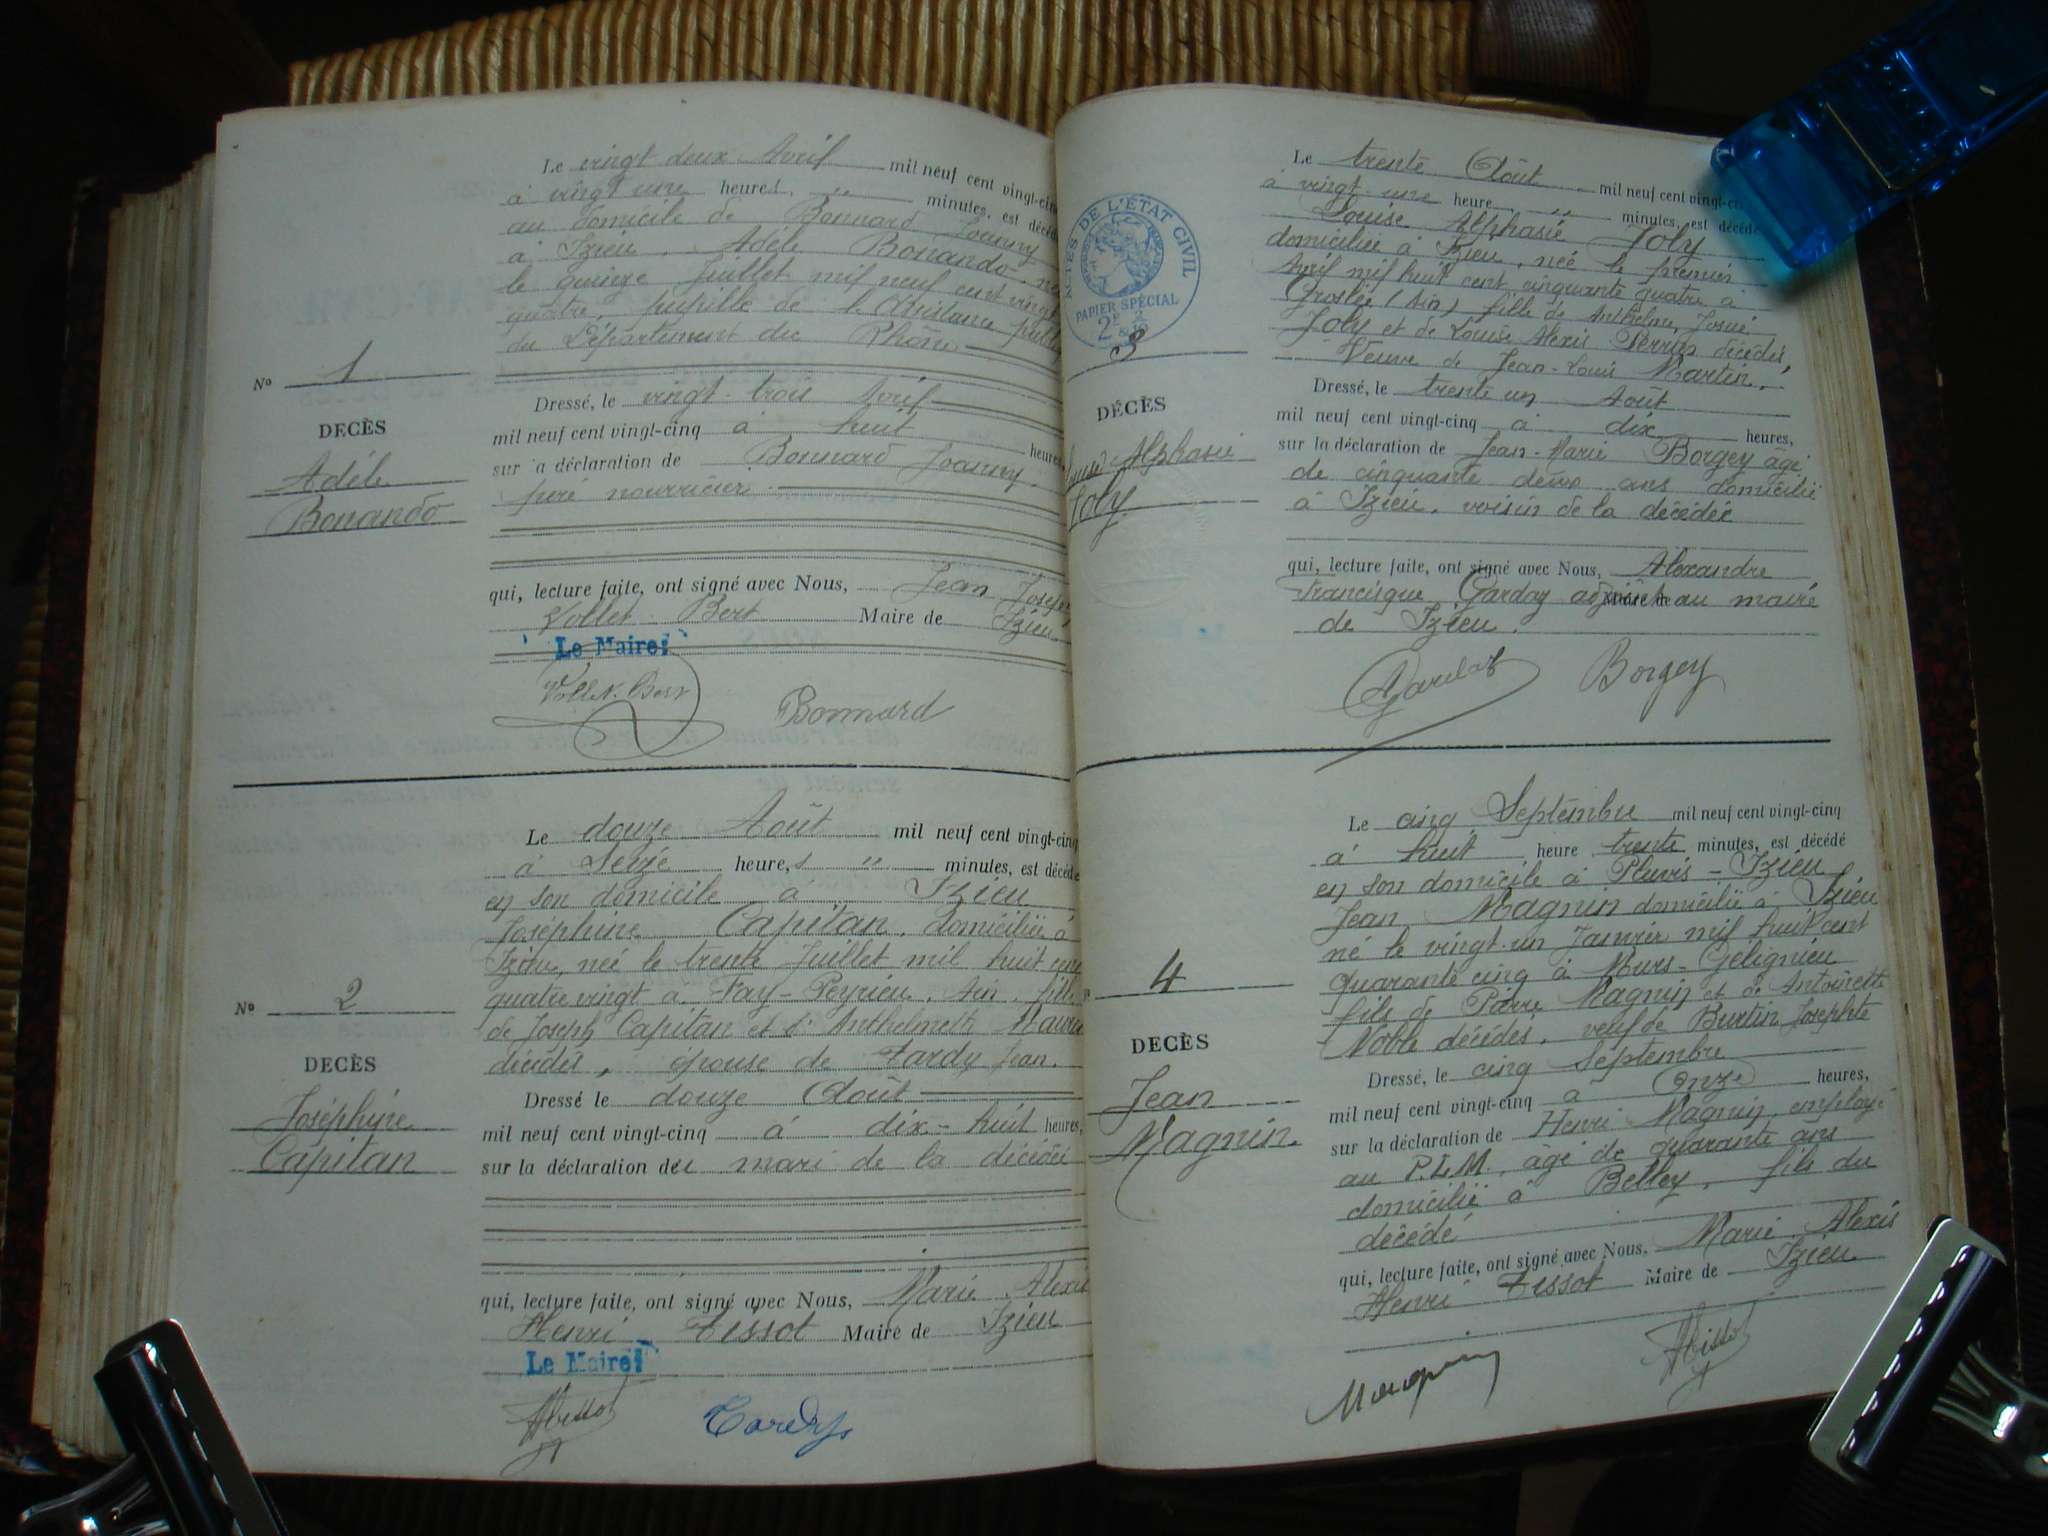 Le vingt deux Avril mil neuf cent vingt-cinq
à vingt une heures, " minutes, est décédé
au domicile de Bonnard Joanny
à Izieu, Adèle Bonando, née
le quinze Juillet mil neuf cent vingt
quatre, pupille de l'Assistance publique
du Département du Rhône
No 1
DECÈS
Adèle
Bonando
Dressé, le vingt-trois Avril
mil neuf cent vingt-cinq à huit heures,
sur la déclaration de Bonnard Joanny,
père nourricier
qui, lecture faite, ont signé avec Nous, Jean Joseph
Vollet Bert Maire de Izieu
Le Maire:
Bonnard
Le douze Août mil neuf cent vingt-cinq
à seize heures " minutes, est décédé
en son domicile à Izieu
Joséphine Capitan, domiciliée à
Izieu, née le trente Juillet mil huit cent
quatre vingt à Fay-Peyrieu, Ain, fille
de Joseph Capitan et d'Anthelmette
décédés, épouse de Tardy Jean.
No 2
DECÈS
Joséphine
Capitan
Dressé le douze Août
mil neuf cent vingt-cinq à dix-huit heures,
sur la déclaration du mari de la décédée
qui, lecture faite, ont signé avec Nous, Marie Alexis
Henri Tissot Maire de Izieu
Le Maire:
HTissot Tardy
ACTES DE L'ÉTAT CIVIL
PAPIER SPÉCIAL
Le trente Août mil neuf cent vingt-cinq
à vingt-une heure " minutes, est décédé
Louise Alphasie Joly
domiciliée à Izieu, née le premier
Avril mil huit cent cinquante quatre à
Groslée (Ain) fille de Anthelme, Josué
Joly et de Louise Alexis Perrin décédés,
Veuve de Jean-Louis Martin.
3
DÉCÈS
Louise Alphasie
Joly
Dressé, le trente un Août
mil neuf cent vingt-cinq à dix heures,
sur la déclaration de Jean-Marie Borgey âgé
de cinquante deux ans domicilié
à Izieu, voisin de la décédée
qui, lecture faite, ont signé avec Nous, Alexandre
Francisque Gardaz adjoint au maire
de Izieu.
Gardaz Borgey
Le cinq Septembre mil neuf cent vingt-cinq
à huit heure trente minutes, est décédé
en son domicile à Pluvis-Izieu
Jean Magnin domicilié à Izieu
né le vingt-un Janvier mil huit cent
quarante cinq à Murs-Gélignieu
fils de Pierre Magnin et de Antoinette
Noble décédés, veuf de Burtin Josephte
4
DECÈS
Jean
Magnin
Dressé, le cinq Septembre
mil neuf cent vingt-cinq à Onze heures,
sur la déclaration de Henri Magnin, employé
au P.L.M., âgé de quarante ans
domicilié à Belley, fils du
décédé
qui, lecture faite, ont signé avec Nous, Marie Alexis
Henri Tissot Maire de Izieu
Magnin HTissot